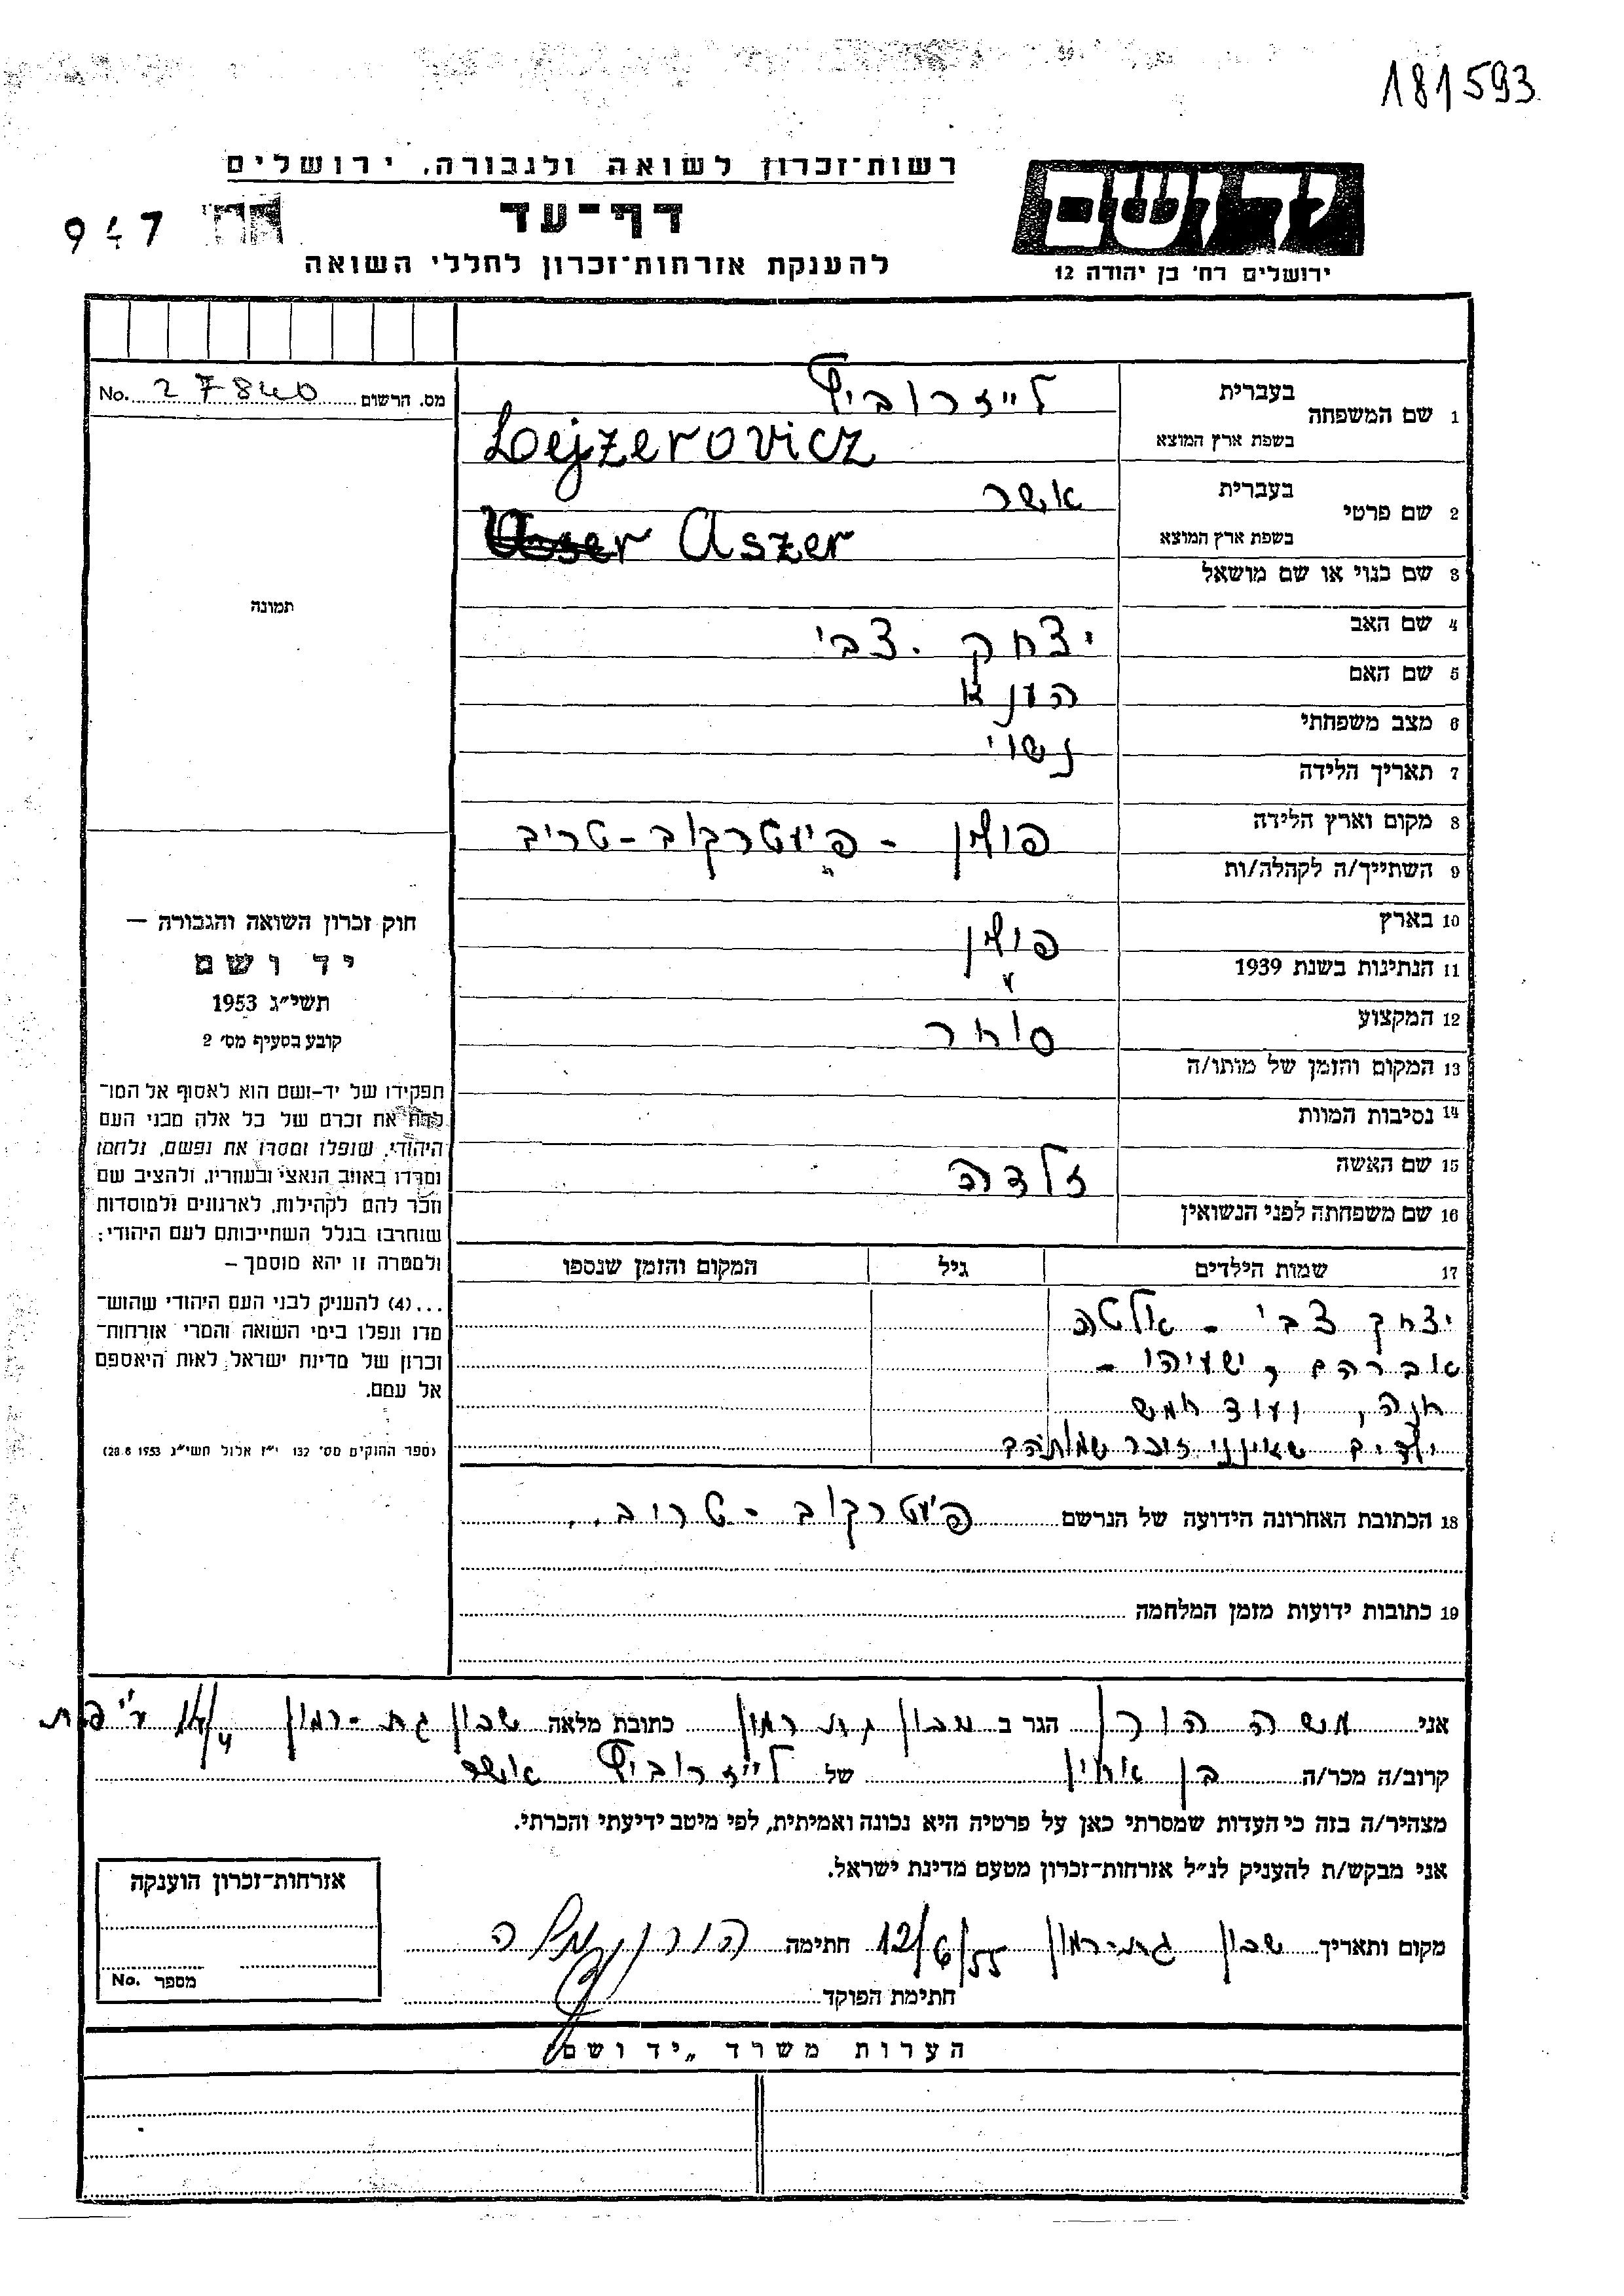 181593
רשות־זכרון לשואה ולגבורה, ירושלים
יד ושם
דף־עד
947
להענקת אזרחות־זכרון לחללי השואה
ירושלים רח' בן יהודה 12
מס. הרשום 27840 No.
תמונה
חוק זכרון השואה והגבורה –
יד ושם
תשי״ג 1953
קובע בסעיף מס' 2
תפקידו של יד-ושם הוא לאסוף אל המו־
לדת את זכרם של כל אלה מבני העם
היהודי, שנפלו ומסרו את נפשם, נלחמו
ומרדו באויב הנאצי ובעוזריו, ולהציב שם
וזכר להם לקהילות, לארגונים ולמוסדות
שנחרבו בגלל השתייכותם לעם היהודי;
ולמטרה זו יהא מוסמך –
...(4) להעניק לבני העם היהודי שהוש־
מדו ונפלו בימי השואה והמרי אזרחות־
זכרון של מדינת ישראל לאות היאספם
אל עמם.
(ספר החוקים מס' 132 י״ז אלול תשי״ג 28.8.1953)
1 שם המשפחה בעברית לייזרוביץ
בשפת ארץ המוצא Lejzerovicz
2 שם פרטי בעברית אשר
בשפת ארץ המוצא Aszer
3 שם כנוי או שם מושאל
4 שם האב יצחק צבי
5 שם האם הענא
6 מצב משפחתי נשוי
7 תאריך הלידה
8 מקום וארץ הלידה פולין - פיעטרקוב-טריב
9 השתייך/ה לקהלה/ות
10 בארץ פולין
11 הנתינות בשנת 1939
12 המקצוע סוחר
13 המקום והזמן של מותו/ה
14 נסיבות המוות
15 שם האשה זלדה
16 שם משפחתה לפני הנשואין
17 שמות הילדים גיל המקום והזמן שנספו
יצחק צבי - אלטה
אברהם, ישעיהו -
חנה, ועוד חמש
ילדים שאינני זוכר שמותהם
18 הכתובת האחרונה הידועה של הנרשם פיעטרקוב - טרוב..
19 כתובות ידועות מזמן המלחמה
אני משה הורן הגר ב שכון גת רמון כתובת מלאה שכון גת-רמון
קרוב/ה מכר/ה בן אחין של לייזרוביץ אשר
מצהיר/ה בזה כי העדות שמסרתי כאן על פרטיה היא נכונה ואמיתית, לפי מיטב ידיעתי והכרתי.
אני מבקש/ת להעניק לנ״ל אזרחות-זכרון מטעם מדינת ישראל.
מקום ותאריך שכון גת-רמון 12/6/55 חתימה הורן משה
חתימת הפוקד
אזרחות-זכרון הוענקה
מספר No.
הערות משרד „יד ושם״